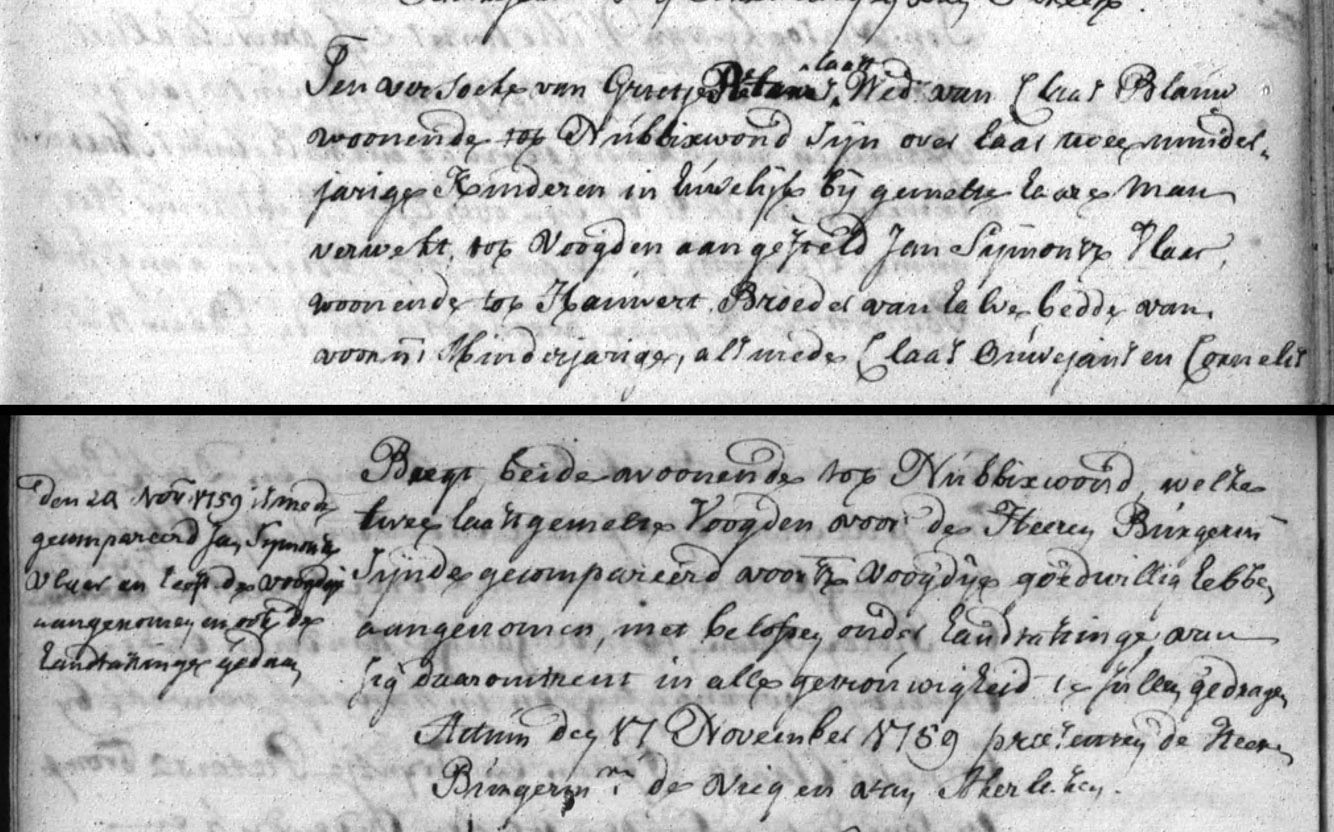 Ten versoeke van Grietje Claas Wed: van Claas Blauw
woonende tot Nibbixwoud sijn over haar twee minder-
jarige Kinderen in huwelijk bij gemelte haare man
verwekt, tot Voogden aangesteld Jan Sijmonsz Vlaar,
woonende tot Hauwert, Broeder van halve bedde van
voorn: Minderjarige, alsmede Claas Ouwejans en Cornelis
Beegt beide woonende tot Nibbixwoud, welke
twee laastgemelte Voogden voor de Heeren Burgerm:
Sijnde gecompareerd voorsz Voogdije goedwillig hebben
aangenomen, met beloften onder handtastinge, van
sig daaromtrent in alle getrouwigheid te sullen gedragen
Actum den 17 November 1759 presentes de Heeren
Burgermrn: de Vrie en van Akerlaken.
den 22 Nov: 1759 is mede
gecompareerd Jan Sijmonsz
Vlaar en heeft de voogdij
aangenomen en ook de
handtastinge gedaan